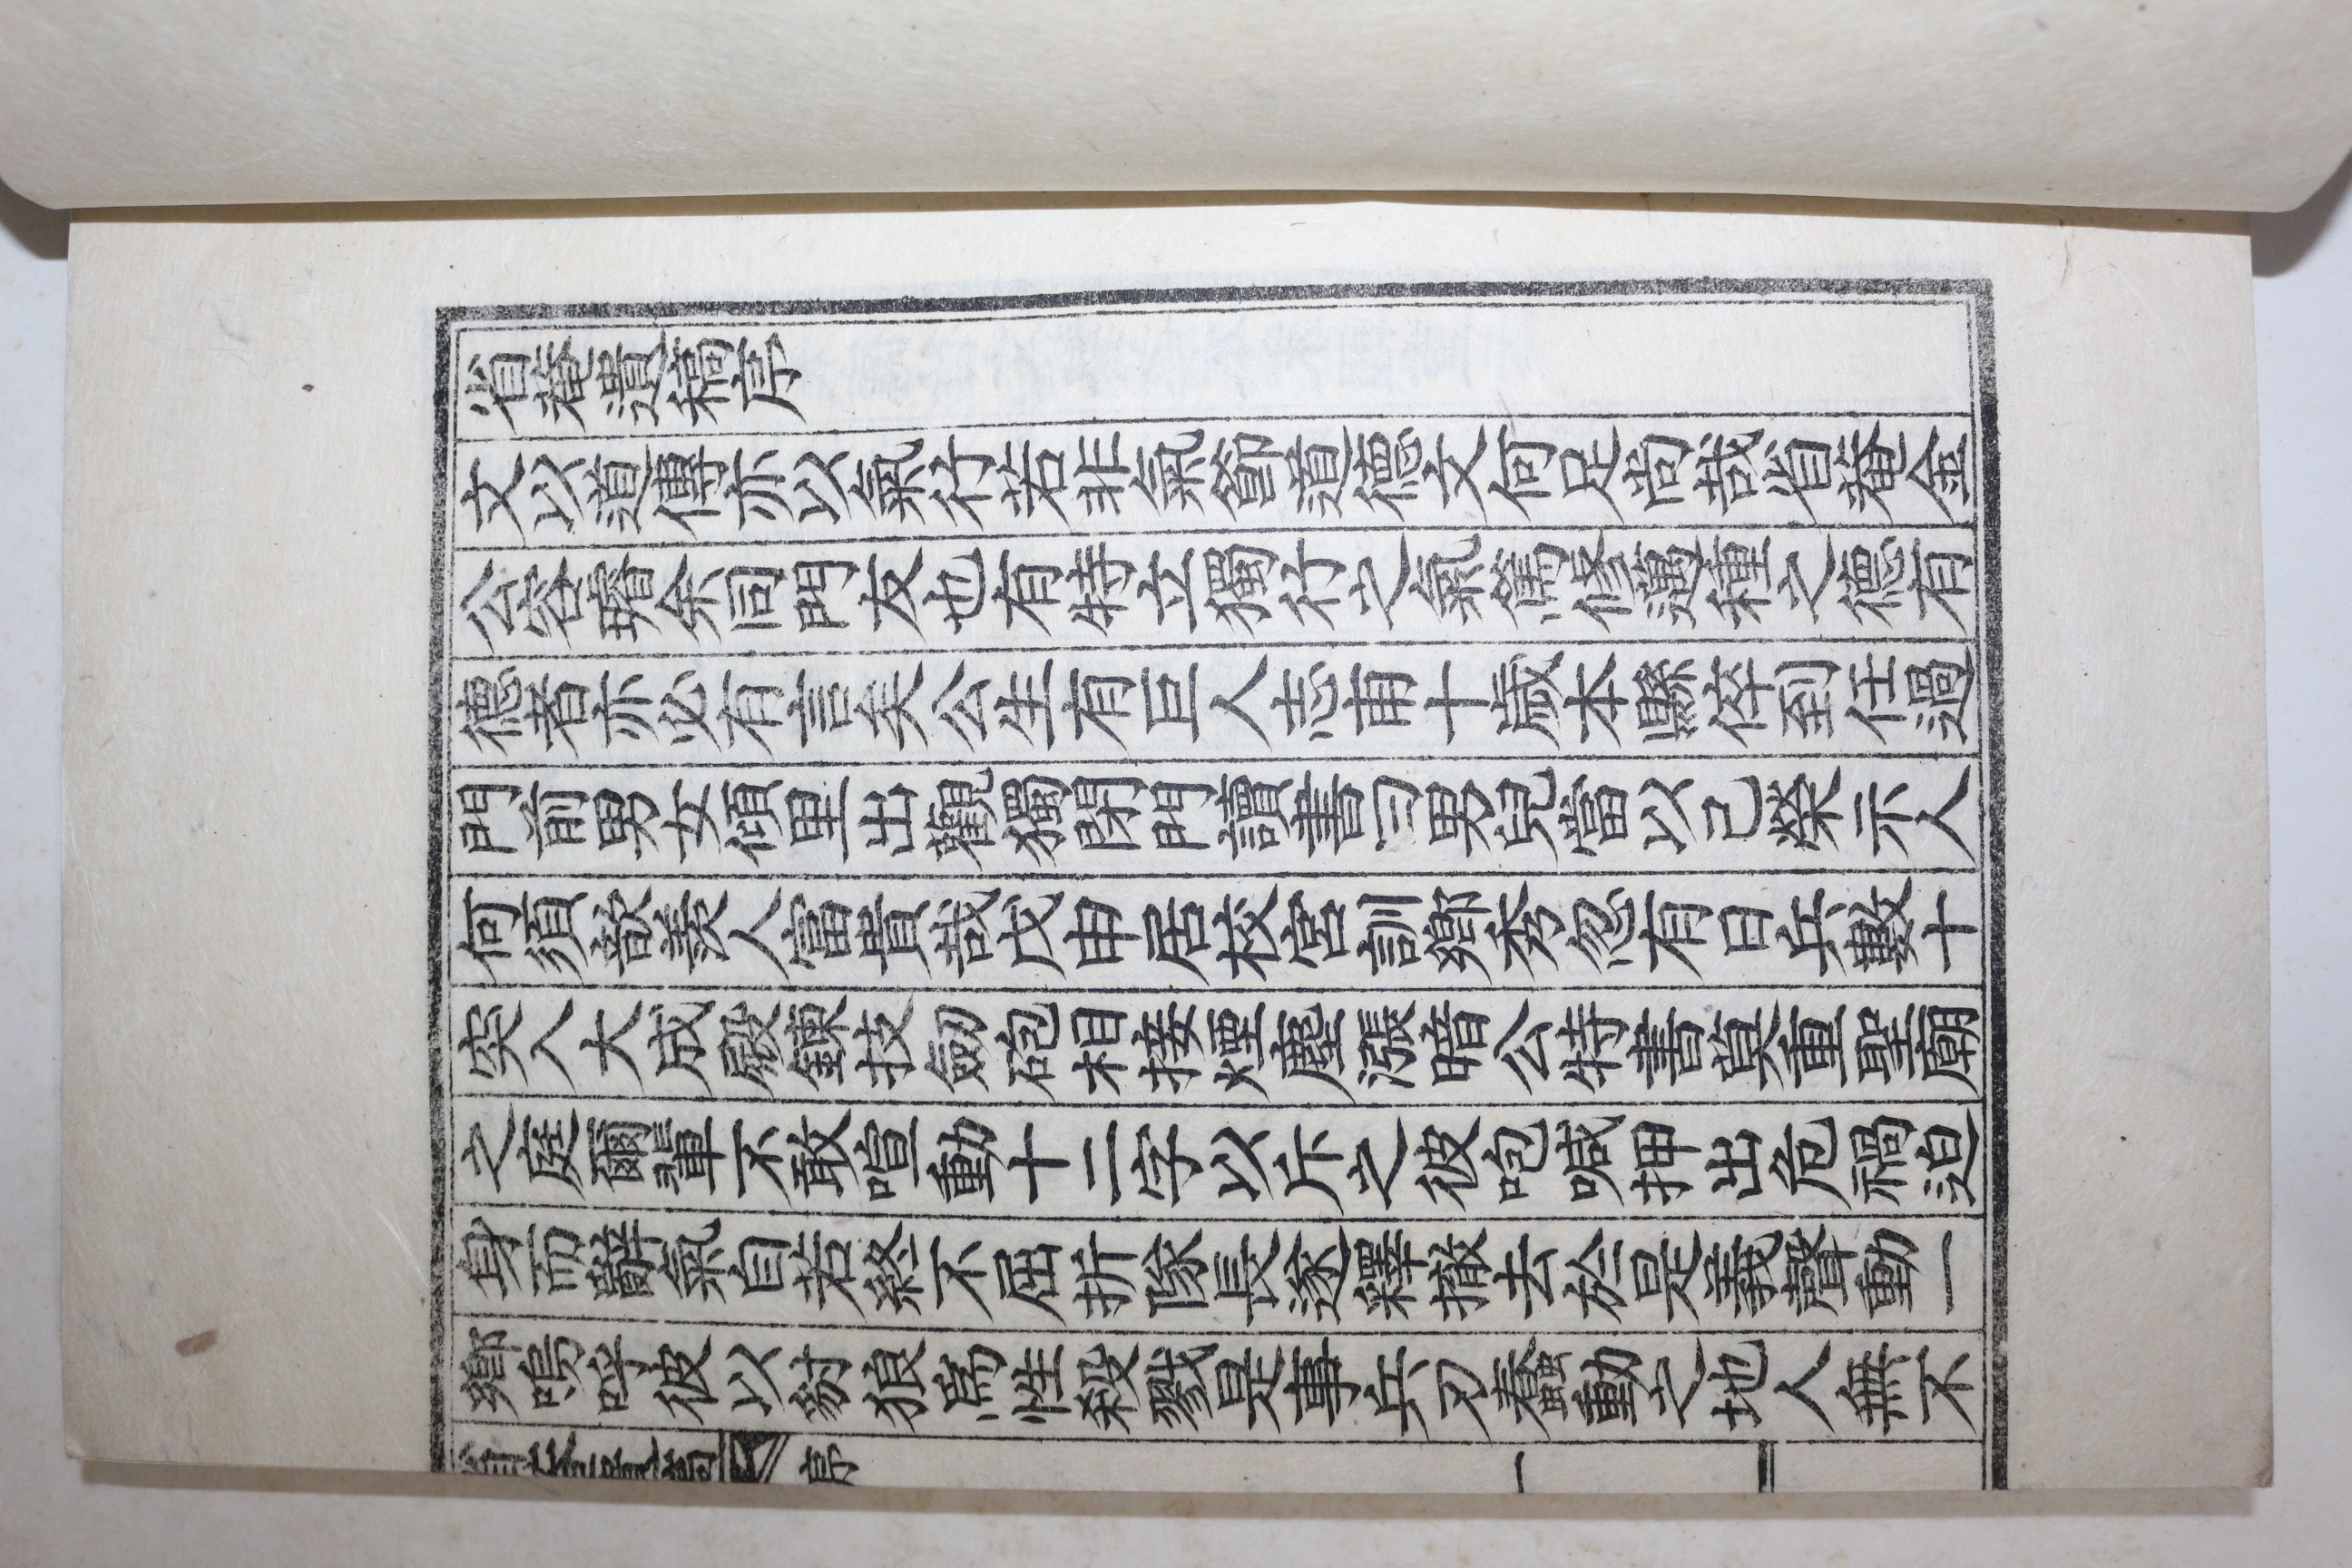 省菴遺稿序
文以道傳亦以氣行若非氣節道德文何足尚哉省菴金
公容璿余同門友也有特立獨行之氣篤修邁種之德有
德者亦必有言矣公生有巨人志甫十歲本縣倅到任過
門前男女傾里出觀獨閉門讀書曰男兒當以己榮示人
何須歆羨人富貴哉戊申居校宮訓鄉秀忽有日兵數十
突入大成殿鍊技劒砲相接煙塵漲暗公特書莫重聖廟
之庭爾輩不敢喧動十二字以斥之彼咆喊押出危禍迫
身而辭氣自若終不屈折隊長遂釋撤去於是義聲動一
鄉嗚呼彼以豺狼爲性殺戮是事兵刃蠢動之地人無不
省菴遺稿 序 一